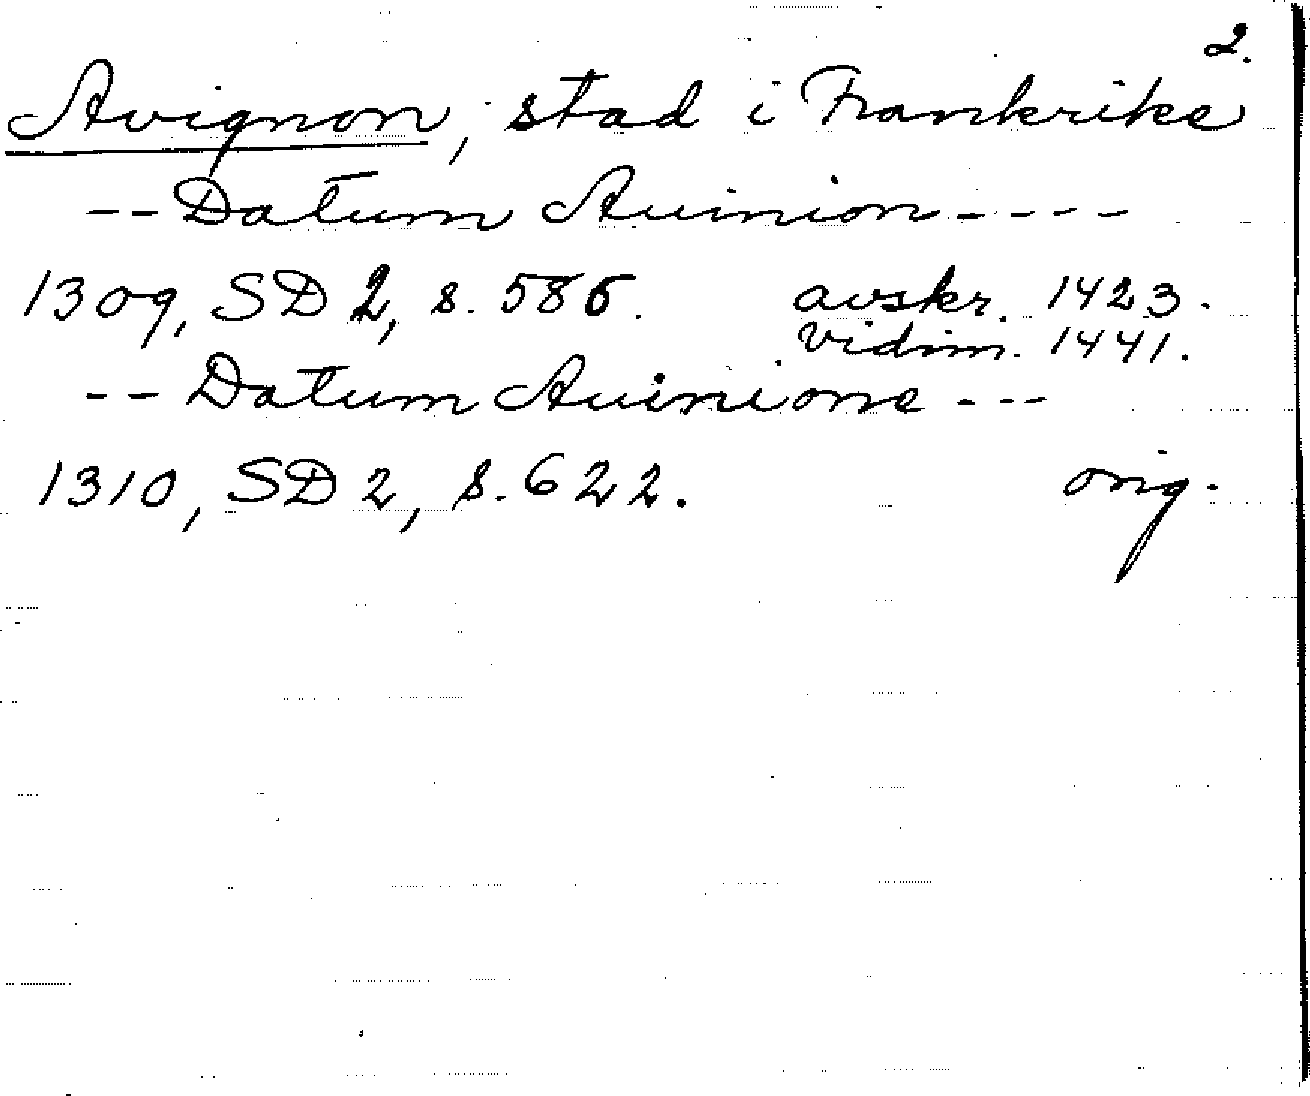 2.
Avignon, stad i Frankrike
-- Datum Auinion ----
1309, SD 2, s. 586. avskr. 1423.
vidim. 1441.
-- Datum Auinione ---
1310, SD 2, s. 622. orig.